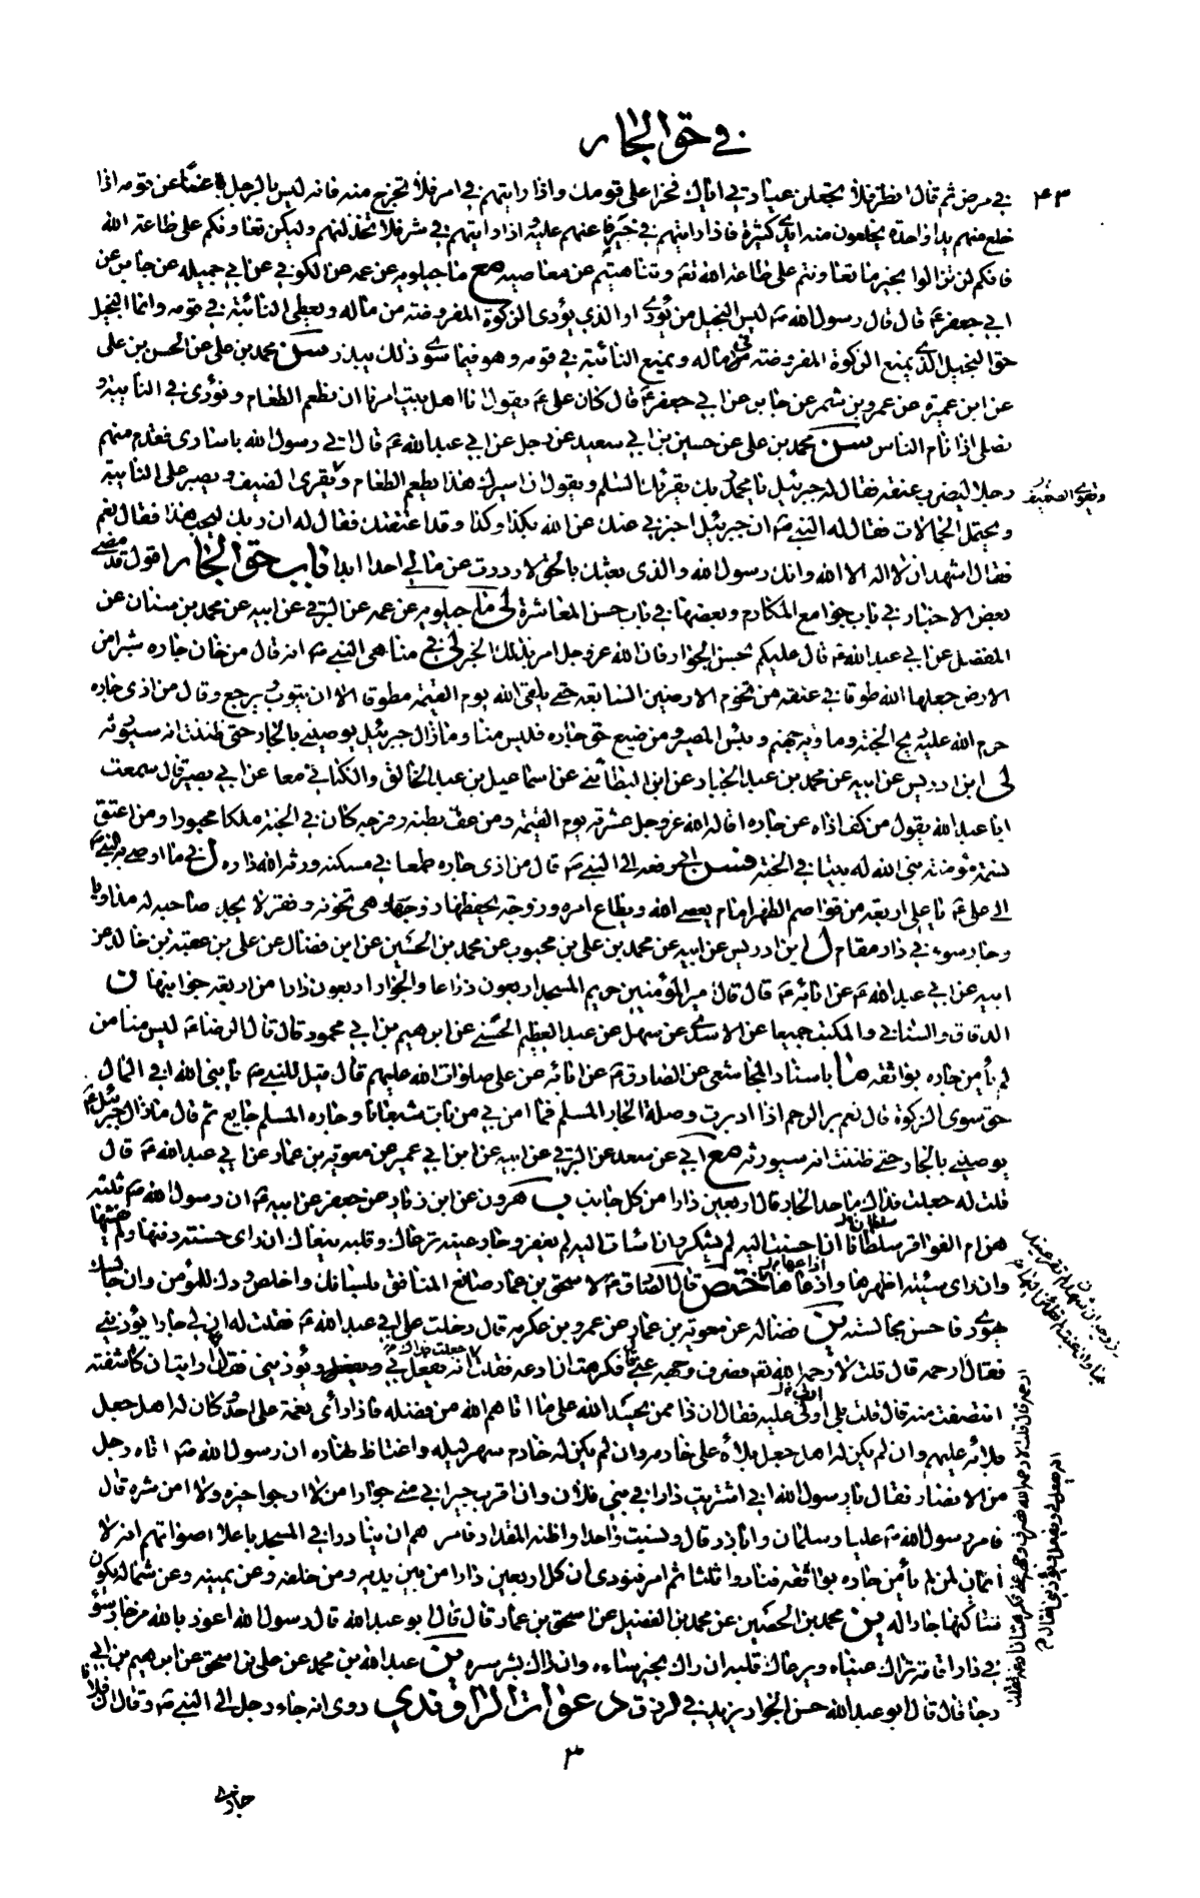 في حق الجار
٤٣
في مرض ثم قال انظر فلا تجعلن عيادتي اياك فخرا على قومك واذا رايتهم في امر فلا تخرج منه فانه ليس بالرجل غنا عن قومه اذا
خلع منهم يدا واحدة يخلعون منه ايدي كثيرة فاذا رايتهم في خير فاعنهم عليه واذا رايتهم في شر فلا تخذلنهم وليكن تعاونكم على طاعة الله
فانكم لن تزالوا بخير ما تعاونتم على طاعة الله تعه وتناهيتم عن معاصيه مع ماجيلويه عن عمه عن الكوفي عن ابي جميله عن جابر عن
ابي جعفر ع قال قال رسول الله ص ليس البخيل من يؤدي او الذي يؤدى الزكوة المفروضة من ماله ويعطي النائبة في قومه وانما البخيل
حق البخيل الذي يمنع الزكوة المفروضة في ماله ويمنع النائبة في قومه وهو فيما سوى ذلك يبذر سن محمد بن علي عن الحسن بن على
عن ابن عميرة عن عمرو بن شمر عن جابر عن ابي جعفر ع قال كان علي ع يقول انا اهل بيت امرنا ان نطعم الطعام ونؤدى في النائبة و
نصلى اذا نام الناس سن محمد بن على عن حسين بن ابي سعيد عن رجل عن ابي عبد الله ع قال اتي رسول الله باسارى فقدم منهم
رجلا ليضرب عنقه فقال له جبرئيل يا محمد ربك يقرئك السلم ويقول ان اسيرك هذا يطعم الطعام ويقرى الضيف ويصبر على النائبة
ويقوي الضعيف
ويحتمل الحمالات فقال له النبي ص ان جبرئيل اخبرني عنك عن الله بكذا وكذا وقد اعتقتك فقال له ان ربك ليحب هذا فقال نعم
فقال اشهد ان لا اله الا الله وانك رسول الله والذي بعثك بالحق لا رددت عن مالي احدا ابدا باب حق الجار اقول قد مضى
بعض الاخبار في باب جوامع المكارم وبعضها في باب حسن المعاشرة لى ماجيلويه عن عمه عن البرقي عن ابيه عن محمد بن سنان عن
المفضل عن ابي عبد الله ع قال عليكم بحسن الجوار فان الله عز وجل امر بذلك الخبر لى في مناهي النبي ص انه قال من خان جاره شبرا من
الارض جعلها الله طوقا في عنقه من تخوم الارضين السابعة حتى يلقى الله يوم القيمة مطوقا الا ان يتوب ويرجع وقال من اذى جاره
حرم الله عليه ريح الجنة وماويه جهنم وبئس المصير ومن ضيع حق جاره فليس منا وما زال جبرئيل يوصيني بالجار حتى ظننت انه سيورثه
لى ابن ادريس عن ابيه عن محمد بن عبد الجبار عن ابن البطائني عن اسماعيل بن عبد الخالق والكناني معا عن ابي بصير قال سمعت
ابا عبد الله يقول من كف اذاه عن جاره اقاله الله عز وجل عثرته يوم القيمة ومن عف بطنه وفرجه كان في الجنة ملكا محبورا ومن اعتق
نسمة مؤمنة بنى الله له بيتا في الجنة فس ابي رفعه الى النبي ص قال من اذى جاره طمعا في مسكنه ورثه الله داره ل في ما اوصى به النبي ص
الى علي ع يا علي اربعة من قواصم الظهر امام يعصي الله ويطاع امره وزوجة يحفظها زوجها وهي تخونه وفقر لا يجد صاحبه له مداويا
وجار سوء في دار مقام ل ابن ادريس عن ابيه عن محمد بن علي بن محبوب عن محمد بن الحسين عن ابن فضال عن علي بن عقبة بن خالد عن
ابيه عن ابي عبد الله ع عن ابائه ع قال قال امير المؤمنين حريم المسجد اربعون ذراعا والجوار اربعون دارا من اربعة جوانبها ن
الدقاق والسناني والمكتب جميعا عن الاسدي عن سهل عن عبد العظيم الحسني عن ابرهيم بن ابي محمود قال قال الرضا ع ليس منا من
لم يأمن جاره بوائقه ما باسناد المجاشعي عن الصادق ع عن ابائه عن علي صلوات الله عليهم قال قيل للنبي ص يا نبي الله افي المال
حق سوى الزكوة قال نعم بر الرحم اذا ادبرت وصلة الجار المسلم فما امن بي من بات شبعانا وجاره المسلم جايع ثم قال ما زال جبرئيل ع
يوصيني بالجار حتى ظننت انه سيورثه مع ابي عن سعد عن البرقي عن ابيه عن ابن ابي عمير عن معوية بن عمار عن ابي عبد الله ع قال
قلت له جعلت فداك ما حد الجار قال اربعين دارا من كل جانب ب هرون عن ابن زياد عن جعفر عن ابيه ع ان رسول الله ص ثلثة
هن ام الفواقر سلطان ان احسنت اليه لم يشكر وان اسات اليه لم يغفر وجار عينه ترعاك وقلبه ينعاك ان راى حسنة دفنها ولم يفشها
وان راى سيئة اظهرها واذاعها ختص قال الصادق ع لاسحق بن عمار صانع المنافق بلسانك واخلص ودك للمؤمن وان جالسك
يهودي فاحسن مجالسته ين فضالة عن معوية بن عمار عن عمرو بن عكرمه قال دخلت على ابي عبد الله ع فقلت له ان لي جارا يؤذيني
فقال ارحمه قال قلت لا رحمه الله فصرف وجهه عني فكرهت ان ادعه فقلت انه يفعل بي ويؤذيني فقال ارايت ان كاشفته
انتصفت منه قال قلت بلى اولى عليه فقال ان ذا ممن يحسد الله على ما اتاهم الله من فضله فاذا رأى نعمة على احد وكان له اهل جعل
بلائه عليهم وان لم يكن له اهل جعل بلائه على خادمه وان لم يكن له خادم سهر ليله واغتاظ نهاره ان رسول الله ص اتاه رجل
من الانصار فقال يا رسول الله اني اشتريت دارا في بني فلان وان اقرب جيراني مني جوارا من لا ارجوا خيره ولا امن شره قال
فامر رسول الله ص عليا وسلمان وابا ذر قال ونسيت واحدا واظنه المقداد فامرهم ان ينادوا في المسجد باعلا اصواتهم انه لا
ايمان لمن لم يأمن جاره بوائقه فنادوا ثلثا ثم امر فنودى ان كل اربعين دارا من بين يديه ومن خلفه وعن يمينه وعن شماله يكون
ساكنها جارا له ين محمد بن الحصين عن محمد بن الفضيل عن اسحق بن عمار قال قال ابو عبد الله قال رسول الله اعوذ بالله من جار سوء
في دار اقامة تراك عيناه ويرعاك قلبه ان راك بخير ساءه وان راك بشر سره ين عبد الله بن محمد عن علي بن اسحق عن ابرهيم بن ابي
رجا قال قال ابو عبد الله حسن الجوار يزيد في الرزق دعوات الراوندي روى انه جاء رجل الى النبي ص وقال ان فلانا
٣
جاري